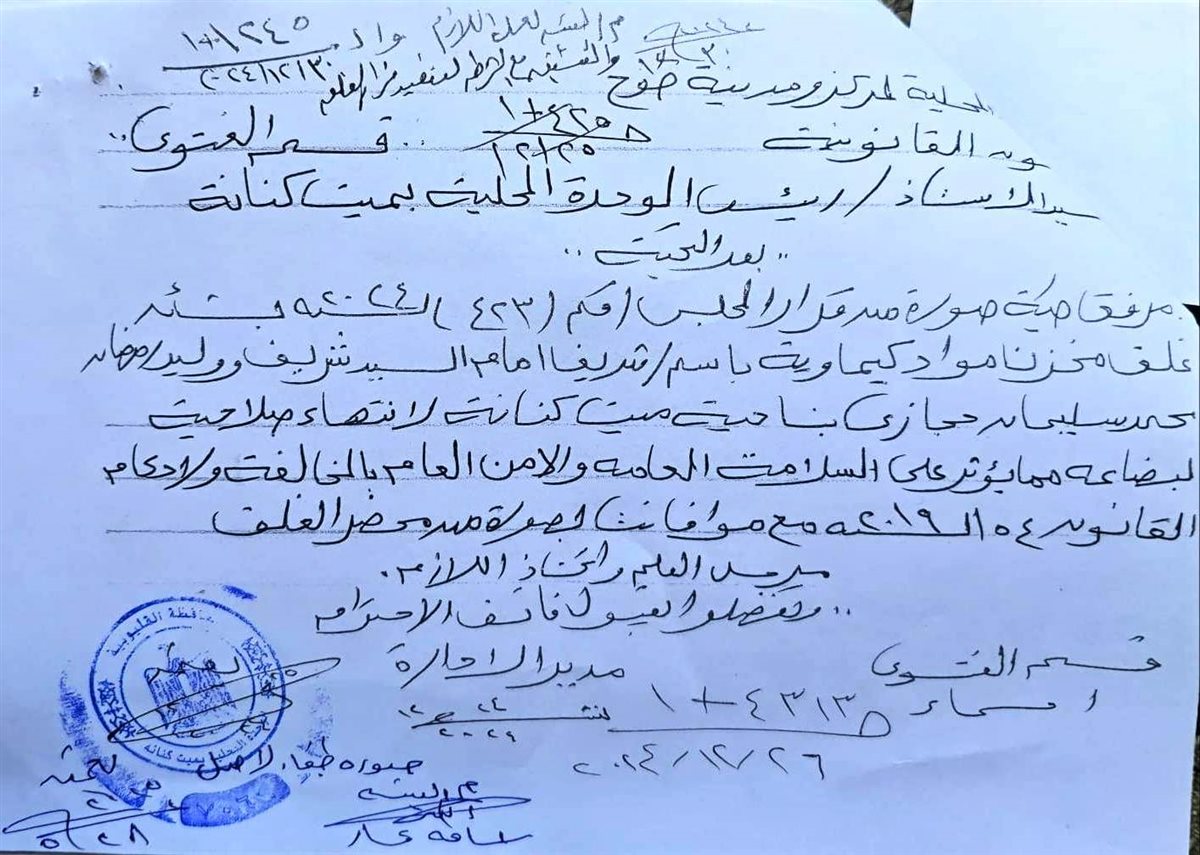 م البيئة لعمل اللازم وارد ١+١٢٤٥
والتنسيق مع الشرطة لتنفيذ قرار الغلق ٢٠٢٤/١٢/٣٠
المحلية لمركز ومدينة طوخ
ون القانونية ١+٤٢٥٥ ١٢/٢٥ .. قسم الفتوى ..
سيد الاستاذ / رئيس الوحدة المحلية بميت كنانة
.. بعد التحية ..
مرفق طيه صورة من قرار المجلس رقم (٤٢٣) لسنة ٢٠٢٤ بشأن
غلق مخزن مواد كيماوية باسم / شريف امام السيد شريف ووليد رمضان
محمد سليمان حجازى بناحية ميت كنانة لانتهاء صلاحية
لبضاعه مما يؤثر على السلامة العامه والامن العام بالمخالفة ولاحكام
القانون ١٥٤ لسنه ٢٠١٩ مع موافاتنا بصورة من محضر الغلق
برجاء العلم واتخاذ اللازم .
.. وتفضلوا بقبول فائق الاحترام
قسم الفتوى مدير الادارة
اسماء ١+٤٣١٣
٢٠٢٤/١٢/٢٦
محافظة القليوبية
الوحدة المحلية بميت كنانه
صوره طبق الاصل
م البيئة